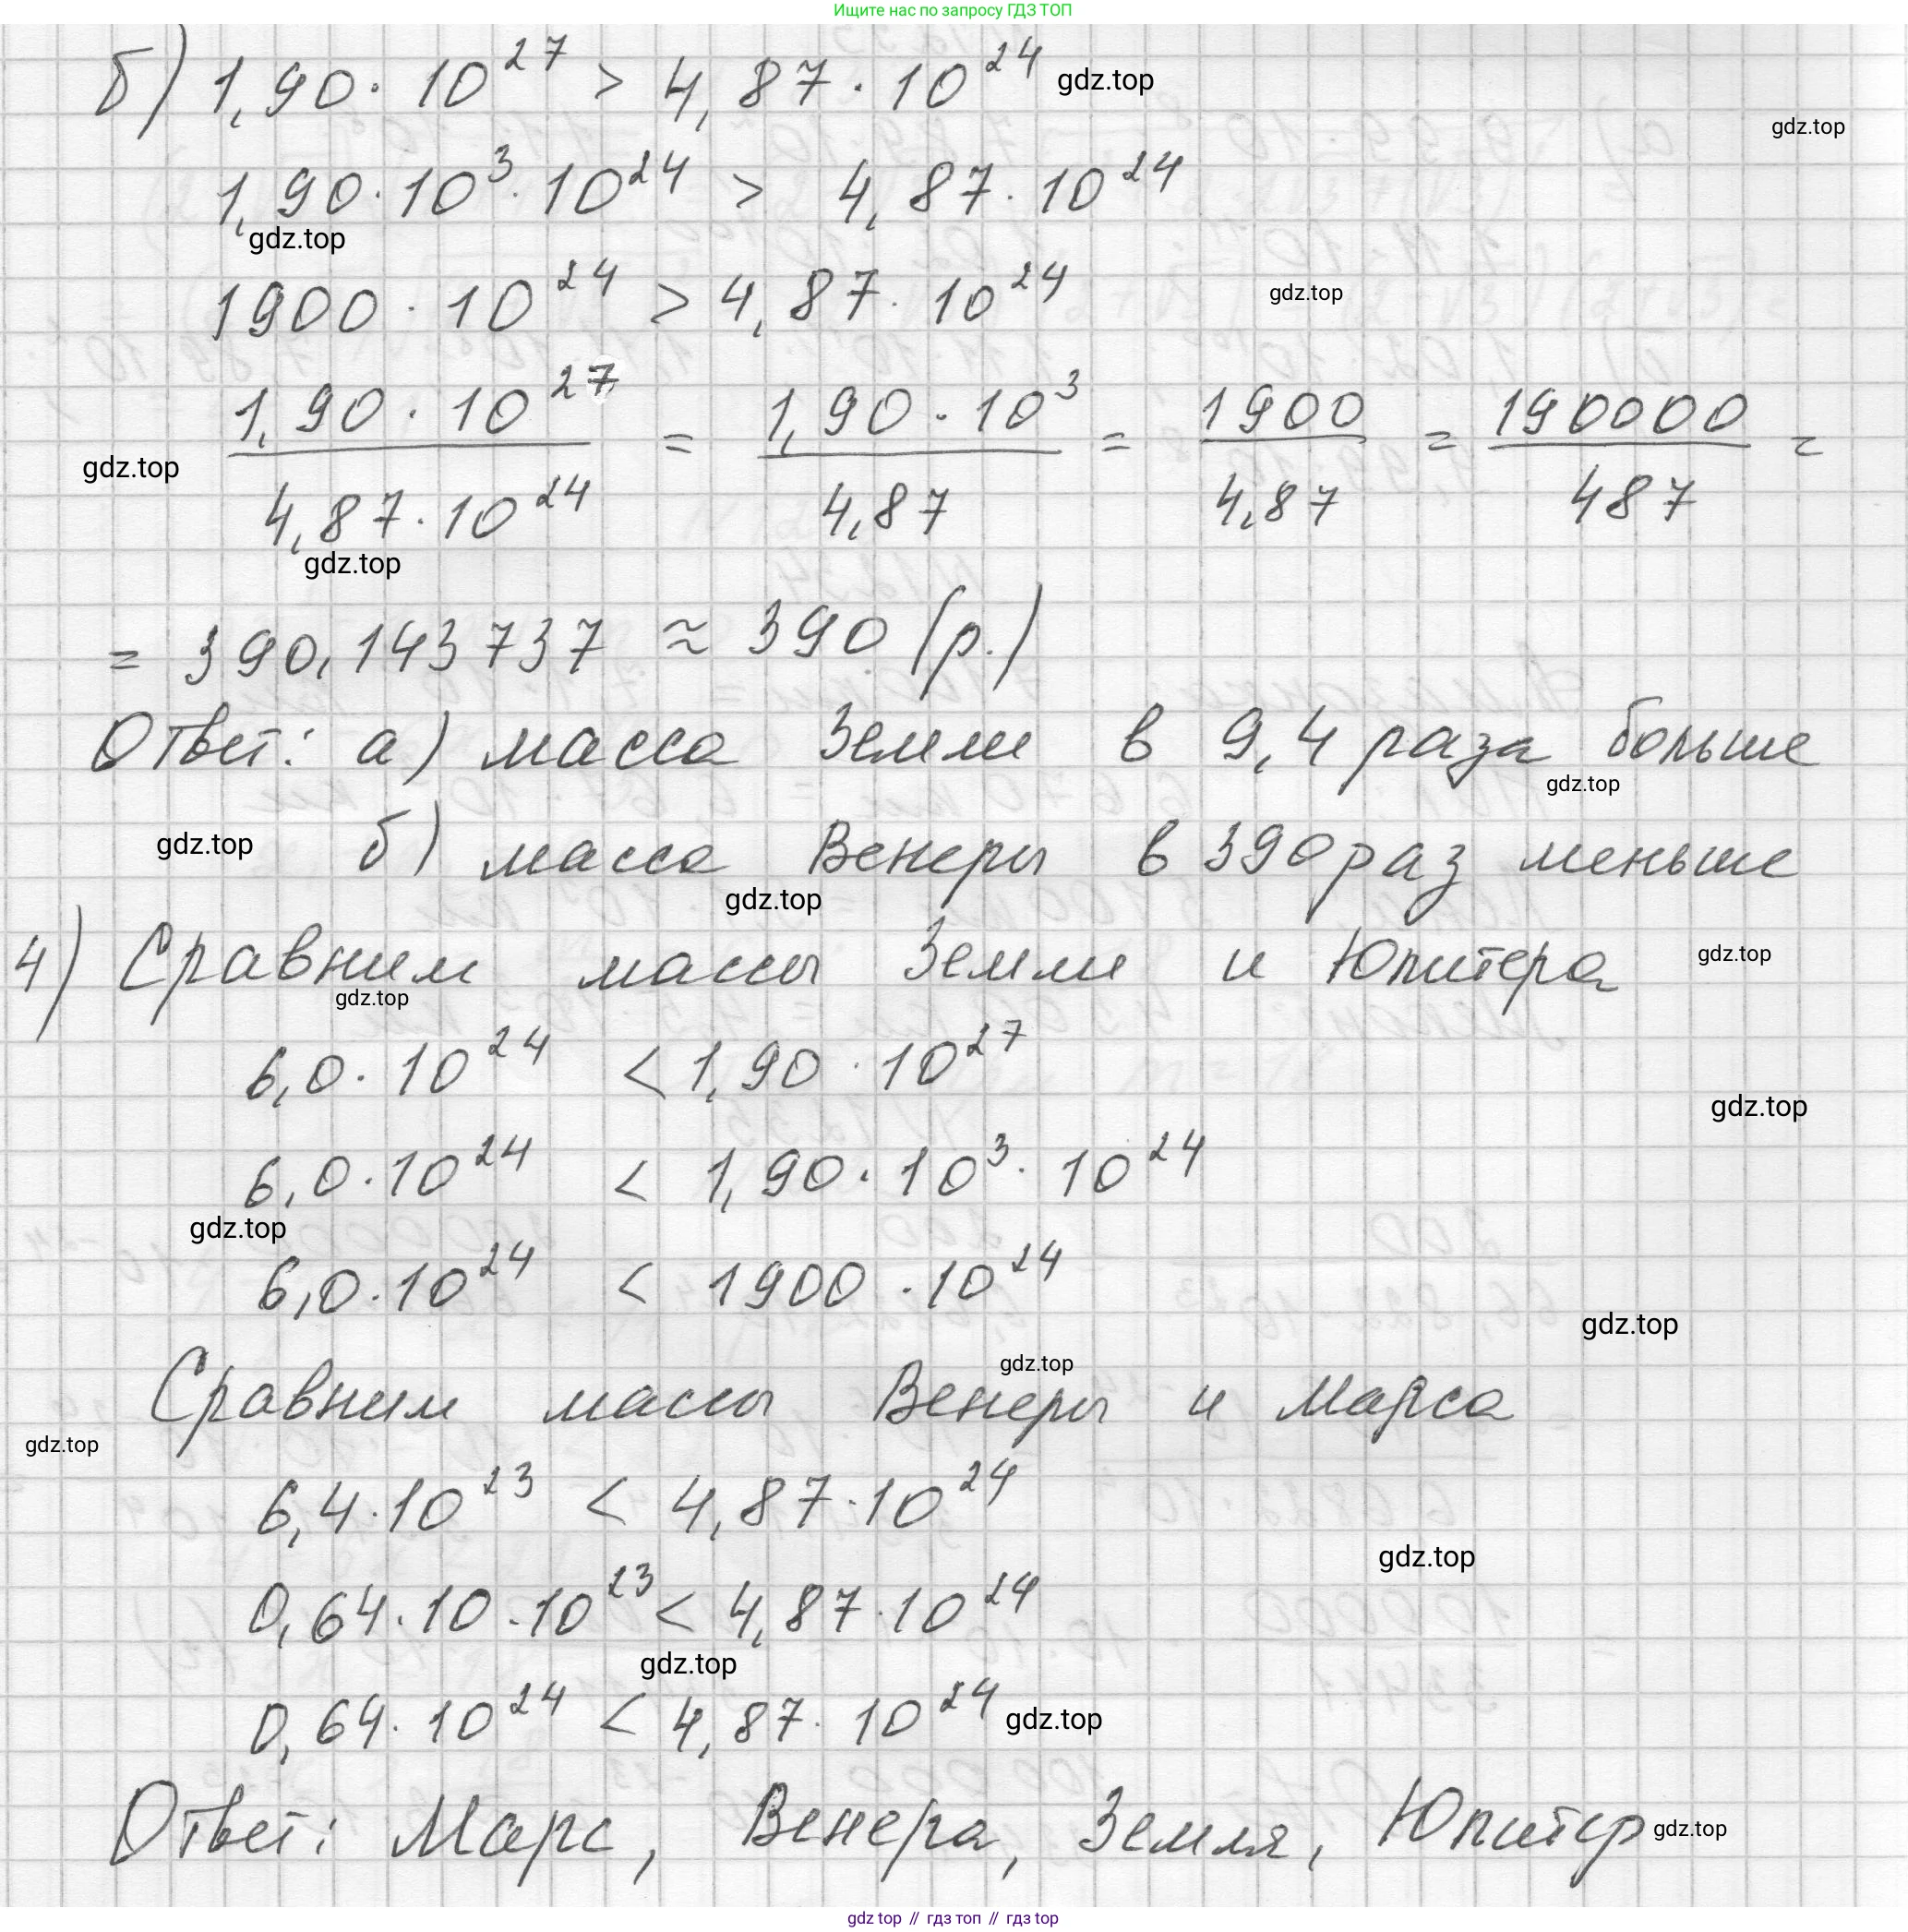 Ищите нас по запросу ГДЗ ТОП
б) 1,90 · 10^27 > 4,87 · 10^24 gdz.top
gdz.top
1,90 · 10^3 · 10^24 > 4,87 · 10^24
gdz.top
1900 · 10^24 > 4,87 · 10^24 gdz.top
1,90 · 10^27 / 4,87 · 10^24 = 1,90 · 10^3 / 4,87 = 1900 / 4,87 = 190000 / 487 =
gdz.top
gdz.top
= 390,143737 ≈ 390 (р.)
Ответ: а) масса Земли в 9,4 раза больше
gdz.top
gdz.top б) масса Венеры в 390 раз меньше
gdz.top
4) Сравним массы Земли и Юпитера gdz.top
gdz.top
6,0 · 10^24 < 1,90 · 10^27
gdz.top
6,0 · 10^24 < 1,90 · 10^3 · 10^24
gdz.top
6,0 · 10^24 < 1900 · 10^24
gdz.top
gdz.top
Сравним массы Венеры и Марса
gdz.top
6,4 · 10^23 < 4,87 · 10^24
gdz.top
0,64 · 10 · 10^23 < 4,87 · 10^24
gdz.top
0,64 · 10^24 < 4,87 · 10^24 gdz.top
Ответ: Марс, Венера, Земля, Юпитер gdz.top
gdz top // гдз топ // гдз top